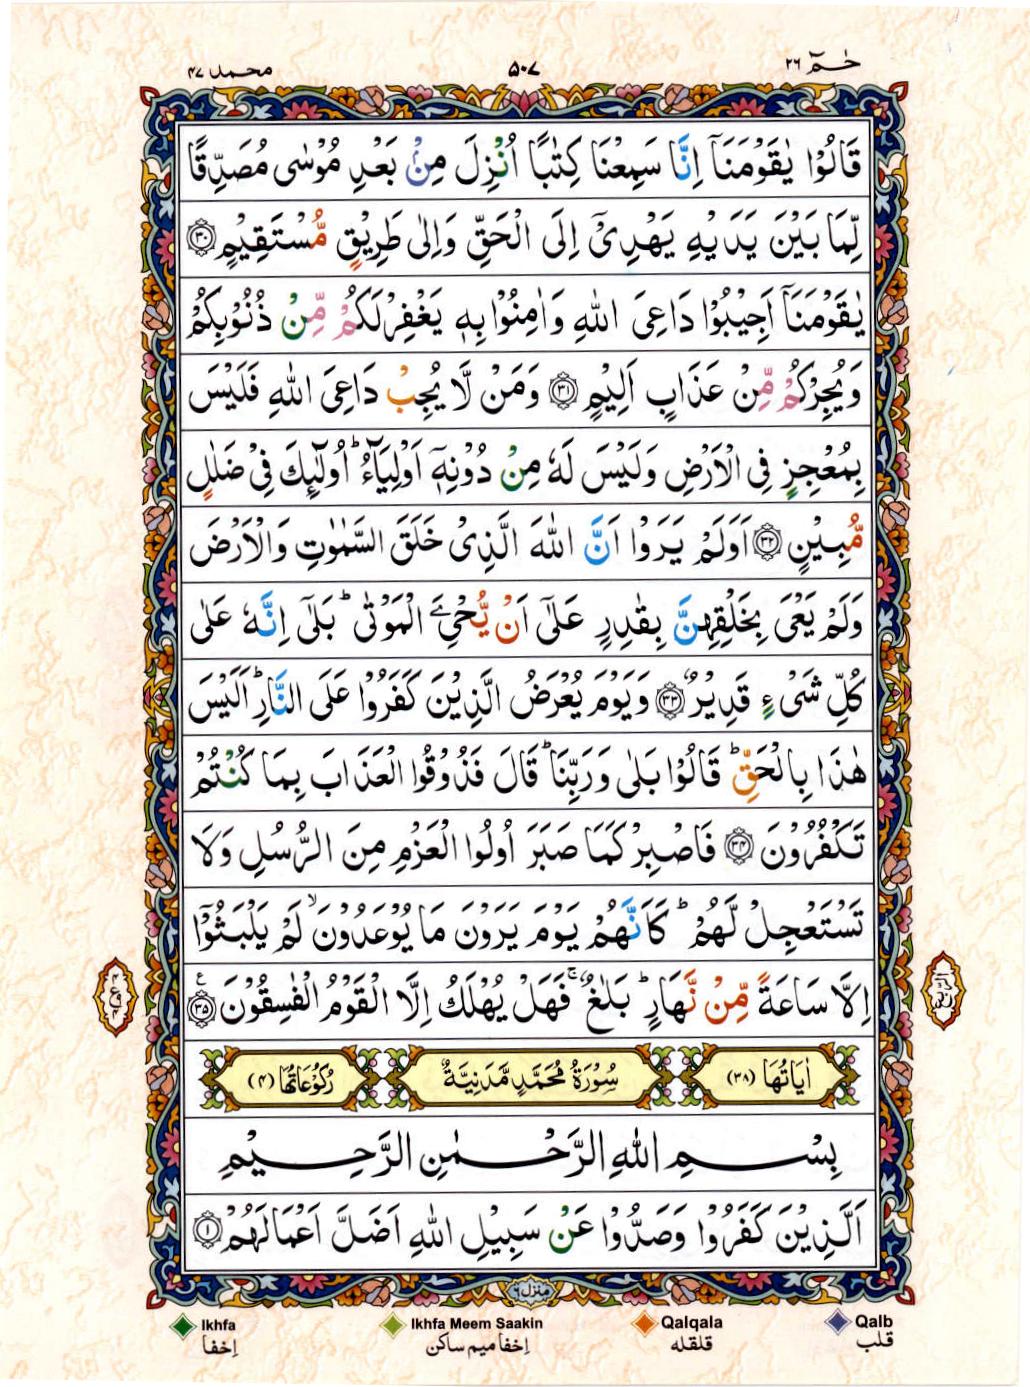 حٰمٓ ٢٦ ٥٠٧ محمد ٤٧
قَالُوْا يٰقَوْمَنَآ اِنَّا سَمِعْنَا كِتٰبًا اُنْزِلَ مِنْۢ بَعْدِ مُوْسٰى مُصَدِّقًا
لِّمَا بَيْنَ يَدَيْهِ يَهْدِيْٓ اِلَى الْحَقِّ وَاِلٰى طَرِيْقٍ مُّسْتَقِيْمٍ ﴿٣٠﴾
يٰقَوْمَنَآ اَجِيْبُوْا دَاعِيَ اللّٰهِ وَاٰمِنُوْا بِهٖ يَغْفِرْ لَكُمْ مِّنْ ذُنُوْبِكُمْ
وَيُجِرْكُمْ مِّنْ عَذَابٍ اَلِيْمٍ ﴿٣١﴾ وَمَنْ لَّا يُجِبْ دَاعِيَ اللّٰهِ فَلَيْسَ
بِمُعْجِزٍ فِي الْاَرْضِ وَلَيْسَ لَهٗ مِنْ دُوْنِهٖٓ اَوْلِيَآءُ ؕ اُولٰٓئِكَ فِيْ ضَلٰلٍ
مُّبِيْنٍ ﴿٣٢﴾ اَوَلَمْ يَرَوْا اَنَّ اللّٰهَ الَّذِيْ خَلَقَ السَّمٰوٰتِ وَالْاَرْضَ
وَلَمْ يَعْيَ بِخَلْقِهِنَّ بِقٰدِرٍ عَلٰٓى اَنْ يُّحْيِ َۧ الْمَوْتٰى ؕ بَلٰٓى اِنَّهٗ عَلٰى
كُلِّ شَيْءٍ قَدِيْرٌ ﴿٣٣﴾ وَيَوْمَ يُعْرَضُ الَّذِيْنَ كَفَرُوْا عَلَى النَّارِ ؕ اَلَيْسَ
هٰذَا بِالْحَقِّ ؕ قَالُوْا بَلٰى وَرَبِّنَا ؕ قَالَ فَذُوْقُوا الْعَذَابَ بِمَا كُنْتُمْ
تَكْفُرُوْنَ ﴿٣٤﴾ فَاصْبِرْ كَمَا صَبَرَ اُولُوا الْعَزْمِ مِنَ الرُّسُلِ وَلَا
تَسْتَعْجِلْ لَّهُمْ ؕ كَاَنَّهُمْ يَوْمَ يَرَوْنَ مَا يُوْعَدُوْنَ ۙ لَمْ يَلْبَثُوْٓا
اِلَّا سَاعَةً مِّنْ نَّهَارٍ ؕ بَلٰغٌ ۚ فَهَلْ يُهْلَكُ اِلَّا الْقَوْمُ الْفٰسِقُوْنَ ﴿٣٥﴾ ع
اٰيَاتُهَا (٣٨) سُوْرَةُ مُحَمَّدٍ مَّدَنِيَّةٌ رُكُوْعَاتُهَا (٤)
بِسْمِ اللّٰهِ الرَّحْمٰنِ الرَّحِيْمِ
اَلَّذِيْنَ كَفَرُوْا وَصَدُّوْا عَنْ سَبِيْلِ اللّٰهِ اَضَلَّ اَعْمَالَهُمْ ﴿١﴾
منزل ٦
Ikhfa Ikhfa Meem Saakin Qalqala Qalb
اِخفا اِخفا میم ساکن قلقله قلب